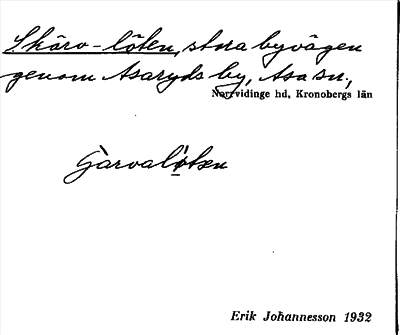 Skäro-löten, stora byvägen
genom Asaryds by, Asa sn.,
Norrvidinge hd, Kronobergs län
Gàrvalo̲ten
Erik Johannesson 1932